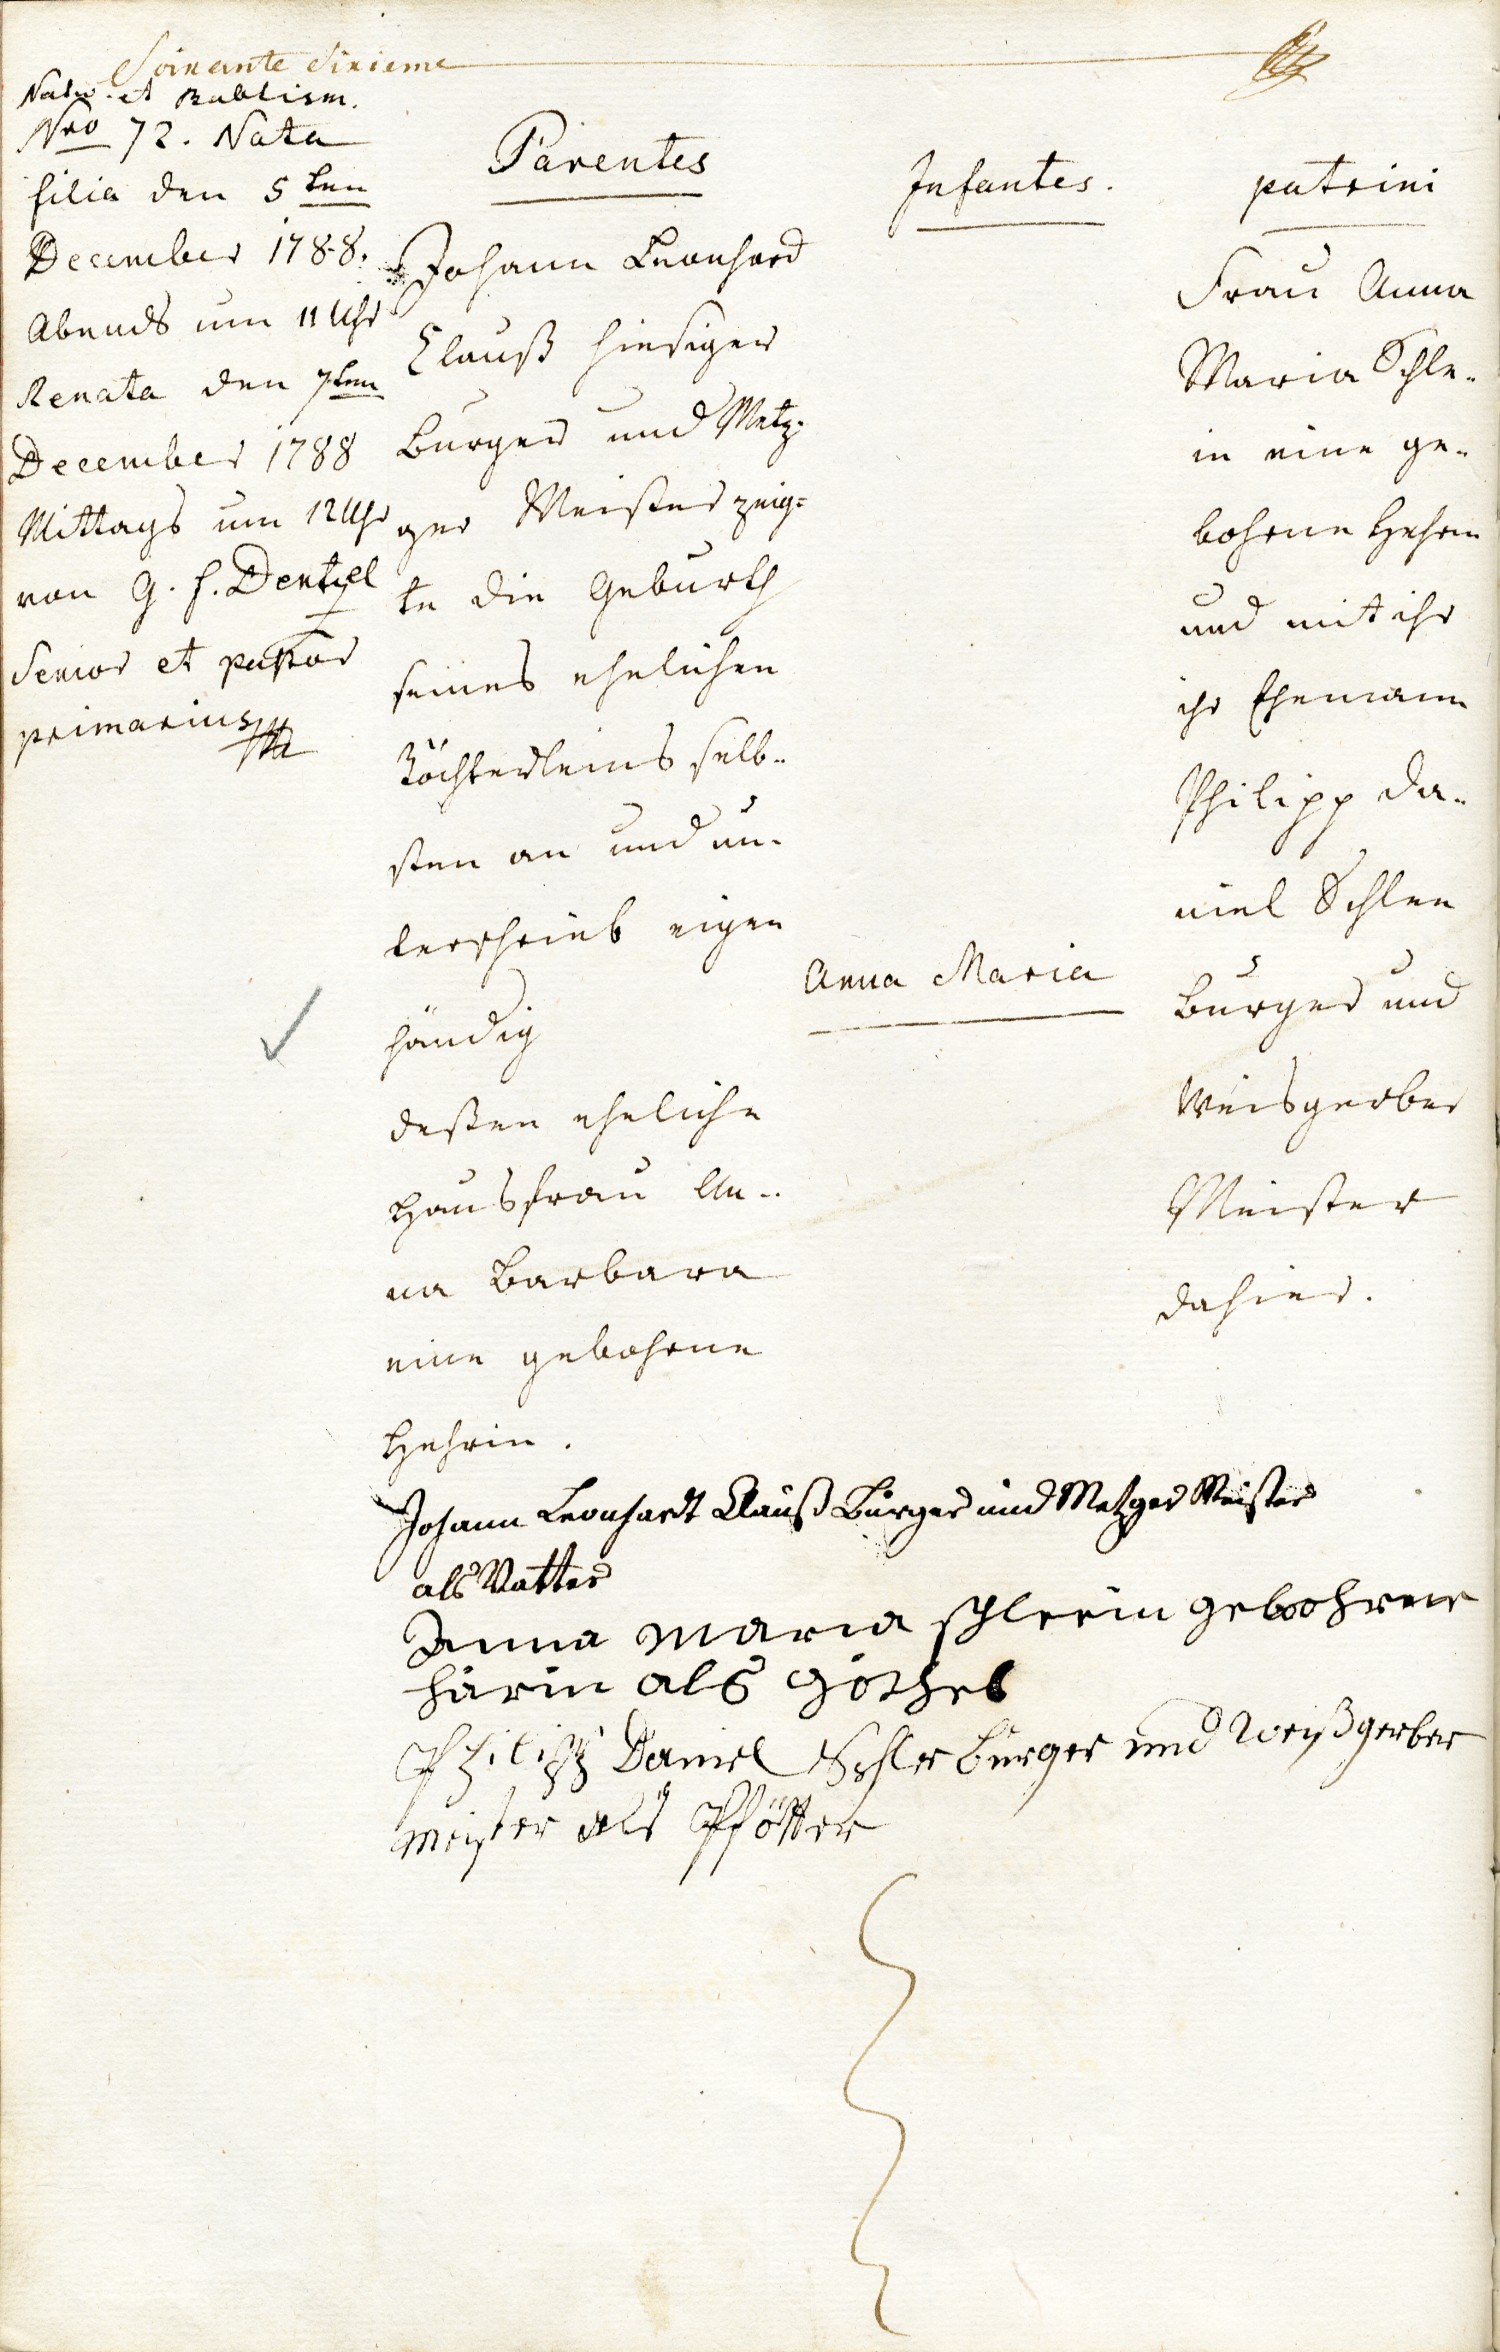 Soixante Sixieme
Nator. et Babtism.
Nro 72. Nata
filia den 5ten
December 1788.
Abends um 11 Uhr
Renata den 7ten
December 1788
Mittags um 12 Uhr
von G. f. Dentzel
Senior et pastor
primarius
Parentes
Johann Leonhard
Clauß hiesiger
Burger und Metz-
ger Meister zeig=
te die Geburth
seines ehelichen
Töchterleins selb-
sten an und un-
terschrieb eigen
händig
deßen eheliche
Hausfrau An-
na Barbara
eine gebohrne
Hehrin.
Infantes.
Anna Maria
patrini
Frau Anna
Maria Schle-
in eine ge-
bohrne Hehrin
und mit ihr
ihr Ehemann
Philipp Da-
niel Schlee
Burger und
Weisgerber
Meister
dahier.
Johann Leonhardt Clauß Burger und Metzger Meister
als Vatter
Anna Maria schleein gebohrene
härin als göthel
Philipp Daniel Schlee burger und Weißgerber
meister als Pfötter